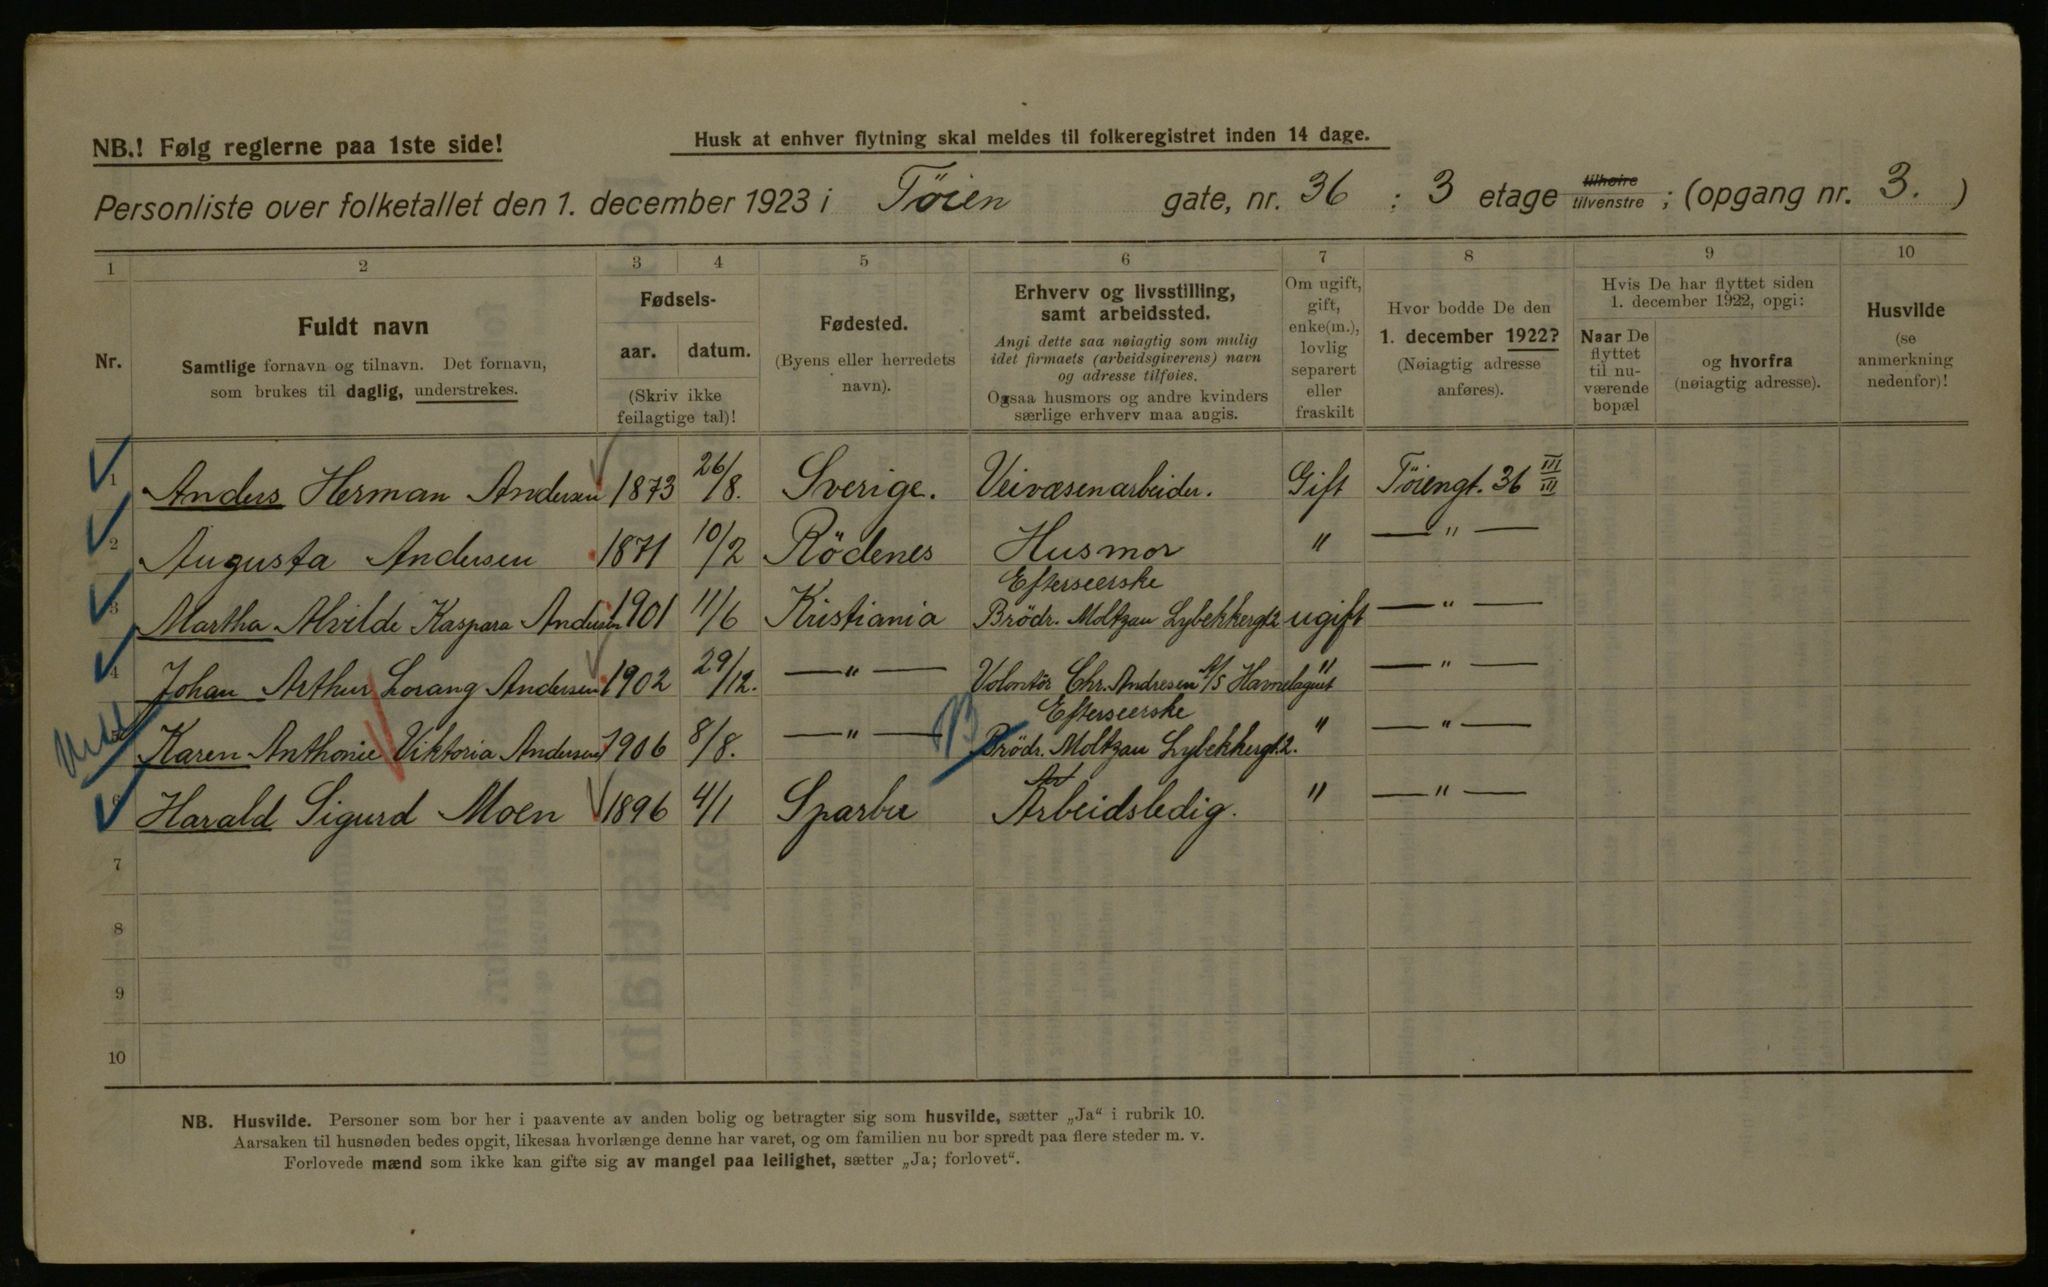 NB.! Følg reglerne paa 1ste side!
Husk at enhver flytning skal meldes til folkeregistret inden 14 dage.
Personliste over folketallet den 1. december 1923 i Tøien gate, nr. 36 : 3 etage tilhøire tilvenstre ; (opgang nr. 3. )
1 2 3 4 5 6 7 8 9 10
Nr.
Fuldt navn
Samtlige fornavn og tilnavn. Det fornavn,
som brukes til daglig, understrekes.
Fødsels-
aar. datum.
(Skriv ikke
feilagtige tal)!
Fødested.
(Byens eller herredets
navn).
Erhverv og livsstilling,
samt arbeidssted.
Angi dette saa nøiagtig som mulig
idet firmaets (arbeidsgiverens) navn
og adresse tilføies.
Ogsaa husmors og andre kvinders
særlige erhverv maa angis.
Om ugift,
gift,
enke(m.),
lovlig
separert
eller
fraskilt
Hvor bodde De den
1. december 1922?
(Nøiagtig adresse
anføres).
Hvis De har flyttet siden
1. december 1922, opgi:
Naar De
flyttet
til nu-
værende
bopæl
og hvorfra
(nøiagtig adresse).
Husvilde
(se
anmerkning
nedenfor)!
1 Anders Herman Andersen 1873 26/8. Sverige. Veivæsenarbeider. Gift Töiengt. 36 III/III
2 Augusta Andersen 1871 10/2 Rödenes Husmor " — " —
3 Martha Alvilde Kaspara Andersen 1901 11/6 Kristiania Efterseerske
Brödr. Moltzau Lybekkergt 2 ugift — " —
4 Johan Arthur Lorang Andersen 1902 29/12. — " — Volontör Chr. Andresen A/S Havnelageret " — " —
5 Karen Anthonie Viktoria Andersen 1906 8/8. — " — Efterseerske
Brödr. Moltzau Lybekkergt. 2. " — " —
6 Harald Sigurd Moen 1896 4/1 Sparbu Arbeidsledig. " — " —
7
8
9
10
NB. Husvilde. Personer som bor her i paavente av anden bolig og betragter sig som husvilde, sætter „Ja“ i rubrik 10.
Aarsaken til husnøden bedes opgit, likesaa hvorlænge denne har varet, og om familien nu bor spredt paa flere steder m. v.
Forlovede mænd som ikke kan gifte sig av mangel paa leilighet, sætter „Ja; forlovet“.